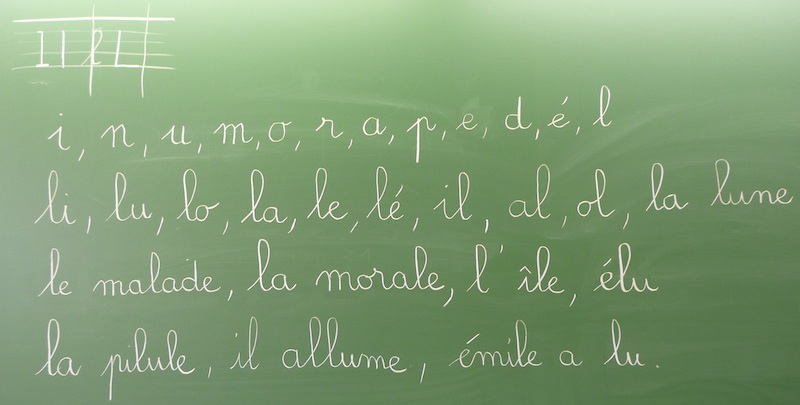 l l l L
i, n, u, m, o, r, a, p, e, d, é, l
li, lu, lo, la, le, lé, il, al, ol, la lune
le malade, la morale, l'île, élu
la pilule, il allume, émile a lu.